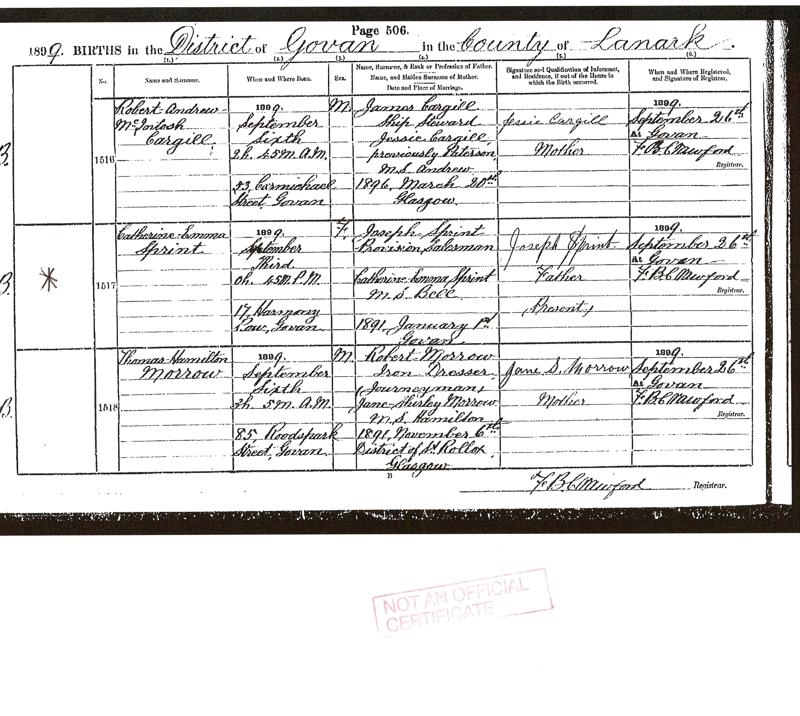 Page 506.
1899. BIRTHS in the District of Govan in the County of Lanark.
(1.) (2.) (3.) (4.) (5.) (6.)
No.
Name and Surname.
When and Where Born.
Sex.
Name, Surname, & Rank or Profession of Father.
Name, and Maiden Surname of Mother.
Date and Place of Marriage.
Signature and Qualification of Informant,
and Residence, if out of the House in
which the Birth occurred.
When and Where Registered,
and Signature of Registrar.
B.
1516
Robert Andrew
McIntosh
Cargill
1899.
September
Sixth
2h. 45 M. A.M.
43, Carmichael
Street, Govan
M.
James Cargill
Ship Steward
Jessie Cargill,
previously Paterson
M.S. Andrew
1896, March 20th
Glasgow.
Jessie Cargill
Mother
1899.
September 26th
At Govan
F. B. C. Mewford
Registrar.
B.
*
1517
Catherine Emma
Sprint
1899.
September
Third
0h. 45 M. P.M.
17, Harmony
Row, Govan
F.
Joseph Sprint
Provision Salesman
Catherine Emma Sprint
M.S. Bell
1891, January 1st
Govan
Joseph Sprint
Father
(Present)
1899.
September 26th
At Govan
F. B. C. Mewford
Registrar.
B.
1518
Thomas Hamilton
Morrow
1899.
September
Sixth
2h. 5 M. A.M.
Street, Govan
M.
Robert Morrow
Iron Dresser
(Journeyman)
Jane Shirley Morrow
M.S. Hamilton
1891, November 6th
District of St. Rollox
Glasgow
Jane S. Morrow
Mother
1899.
September 26th
At Govan
F. B. C. Mewford
Registrar.
B
F. B. C. Mewford Registrar.
NOT AN OFFICIAL
CERTIFICATE